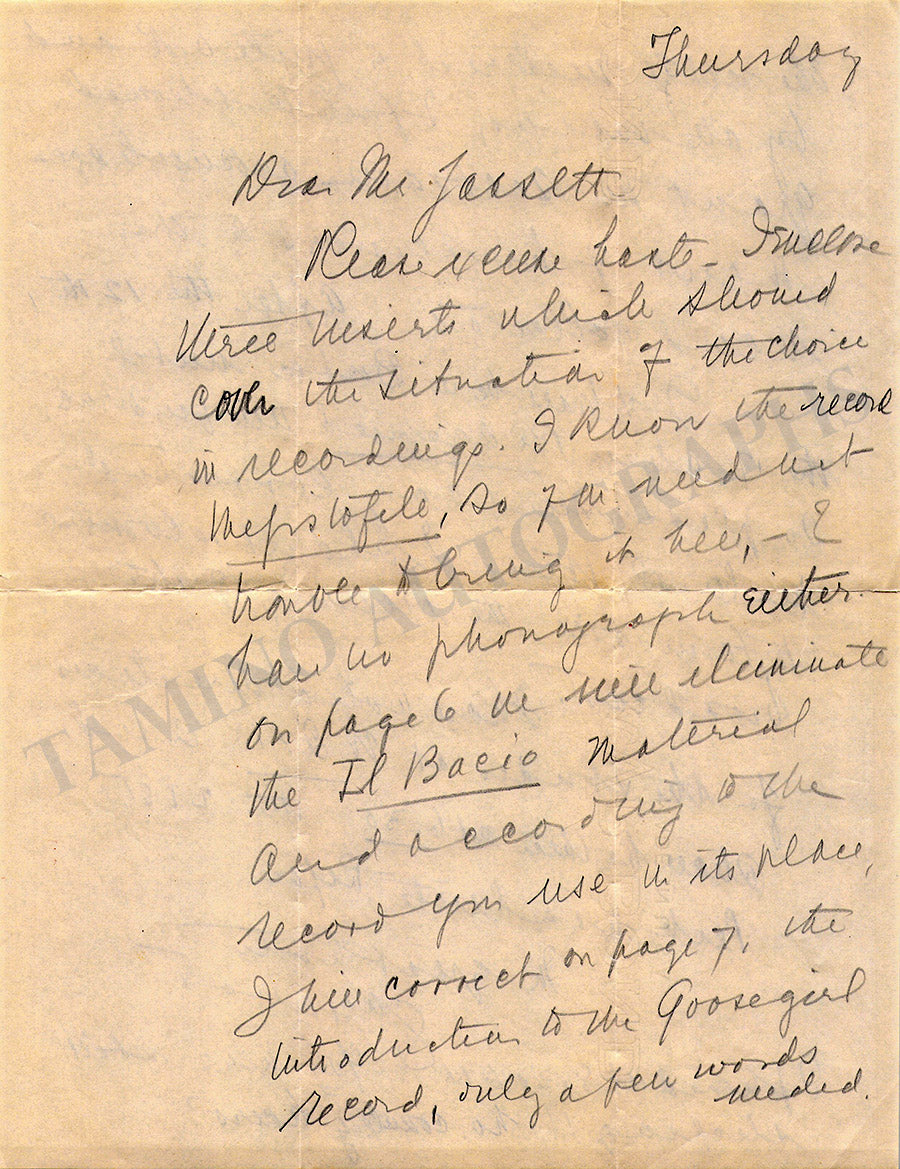 Thursday
Dear Mr. Jassett
Please excuse haste - I enclose
three inserts which should
cover the situation of the choice
in recordings. I know the record
Mefistofele, so you need not
trouble to bring it here, - I
have no phonograph either.
on page 6 we will eliminate
the Il Bacio material
and according to the
record you use in its place,
I will correct on page 7, the
introduction to the Goosegirl
record, only a few words
needed.
TAMINO AUTOGRAPHS